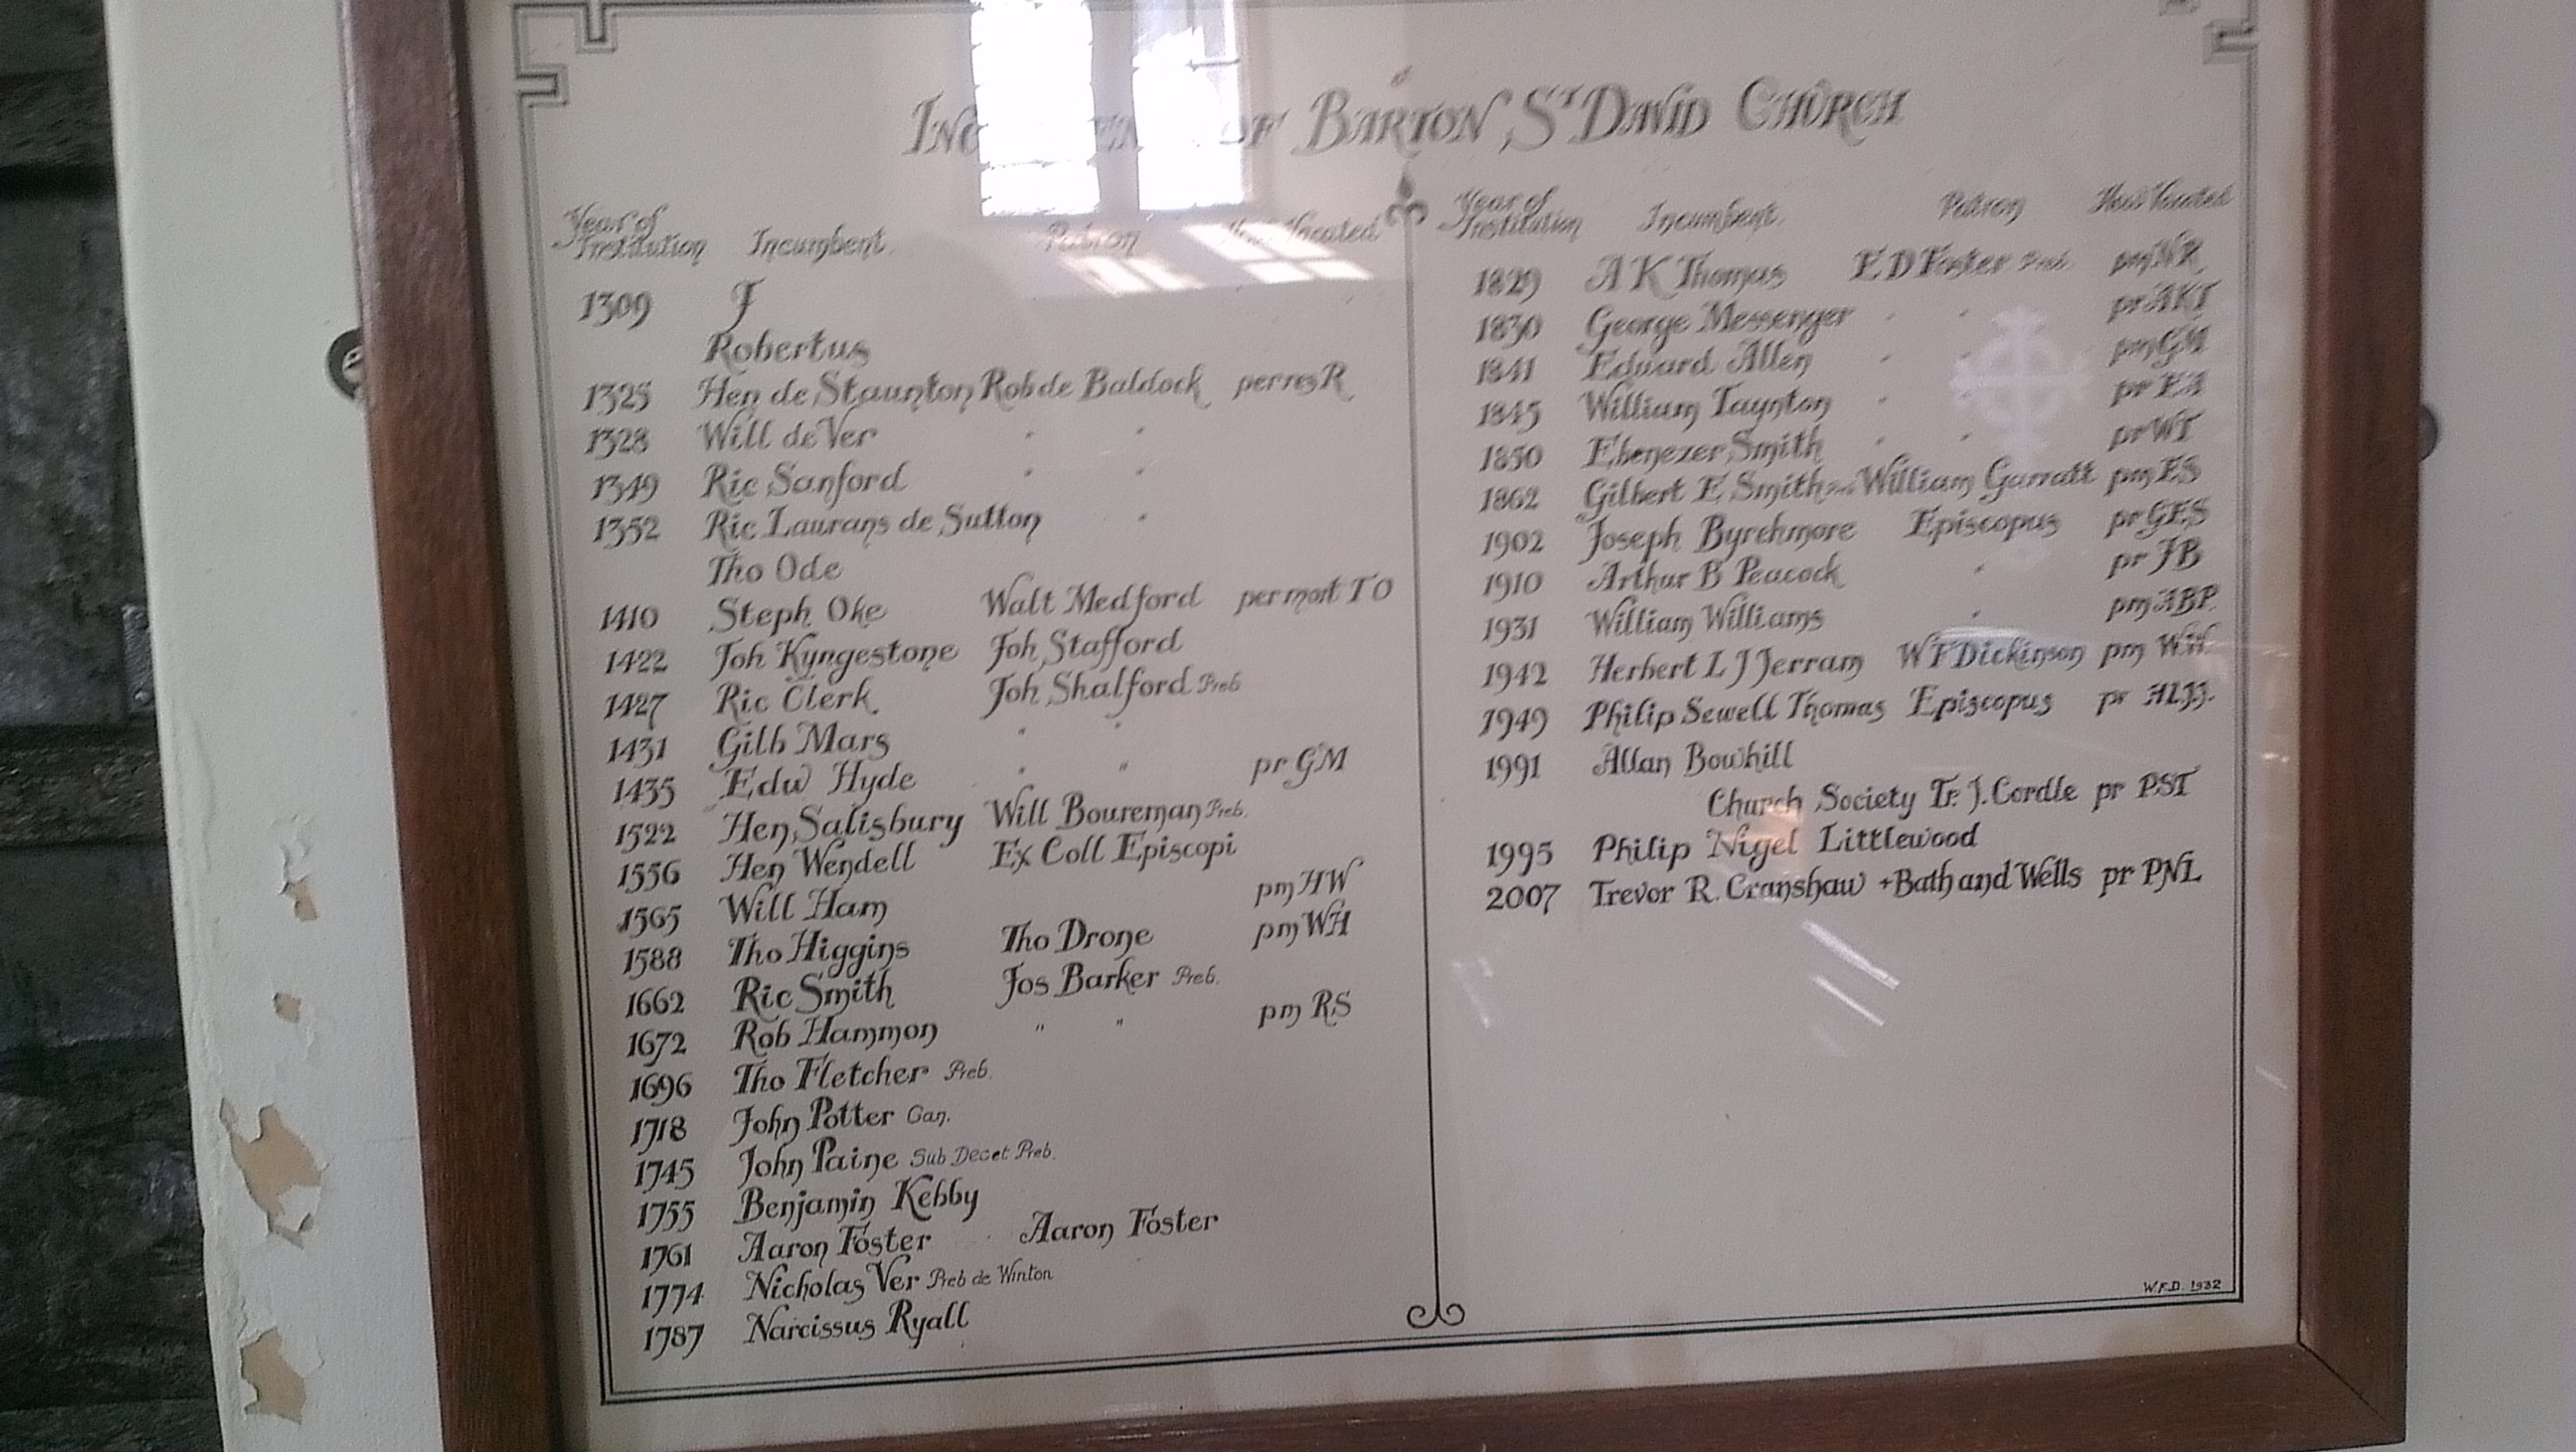 OF BARTON ST DAVID CHURCH
Year of Institution Incumbent Patron How Vacated
1309 J
Robertus
1325 Hen de Staunton Rob de Baldock per res R
1328 Will de Ver " "
1349 Ric Sanford " "
1352 Ric Laurans de Sutton "
Tho Ode
1410 Steph Oke Walt Medford per mort T O
1422 Joh Kyngestone Joh Stafford
1427 Ric Clerk Joh Shalford Preb
1431 Gilb Mars " "
1435 Edw Hyde " " pr GM
1522 Hen Salisbury Will Boureman Preb.
1556 Hen Wendell Ex Coll Episcopi
1565 Will Ham pm HW
1588 Tho Higgins Tho Drone pm WH
1662 Ric Smith Jos Barker Preb.
1672 Rob Hammon " " pm RS
1696 Tho Fletcher Preb.
1718 John Potter Can.
1745 John Paine Sub Decet Preb.
1755 Benjamin Kebby
1761 Aaron Foster Aaron Foster
1774 Nicholas Ver Preb de Winton
1787 Narcissus Ryall
Year of Institution Incumbent. Patron How Vacated
1829 A K Thomas F D Foster Preb. pm NR
1830 George Messenger " " pr AKT
1841 Edward Allen " " pm GM
1845 William Taynton " pr EA
1850 Ebenezer Smith " " pr WT
1862 Gilbert E Smith William Garratt pm ES
1902 Joseph Byrchmore Episcopus pr GES
1910 Arthur B Peacock " pr JB
1931 William Williams " pm ABP.
1942 Herbert L J Jerram W F Dickinson pm WW.
1949 Philip Sewell Thomas Episcopus pr HLJJ.
1991 Allan Bowhill
Church Society Tr. J. Cordle pr PST
1995 Philip Nigel Littlewood
2007 Trevor R. Cranshaw + Bath and Wells pr PNL
W.F.D. 1932